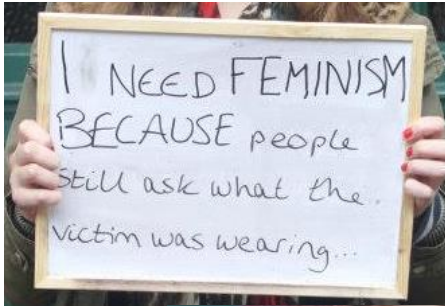 I NEED FEMINISM
BECAUSE people
still ask what the
victim was wearing...